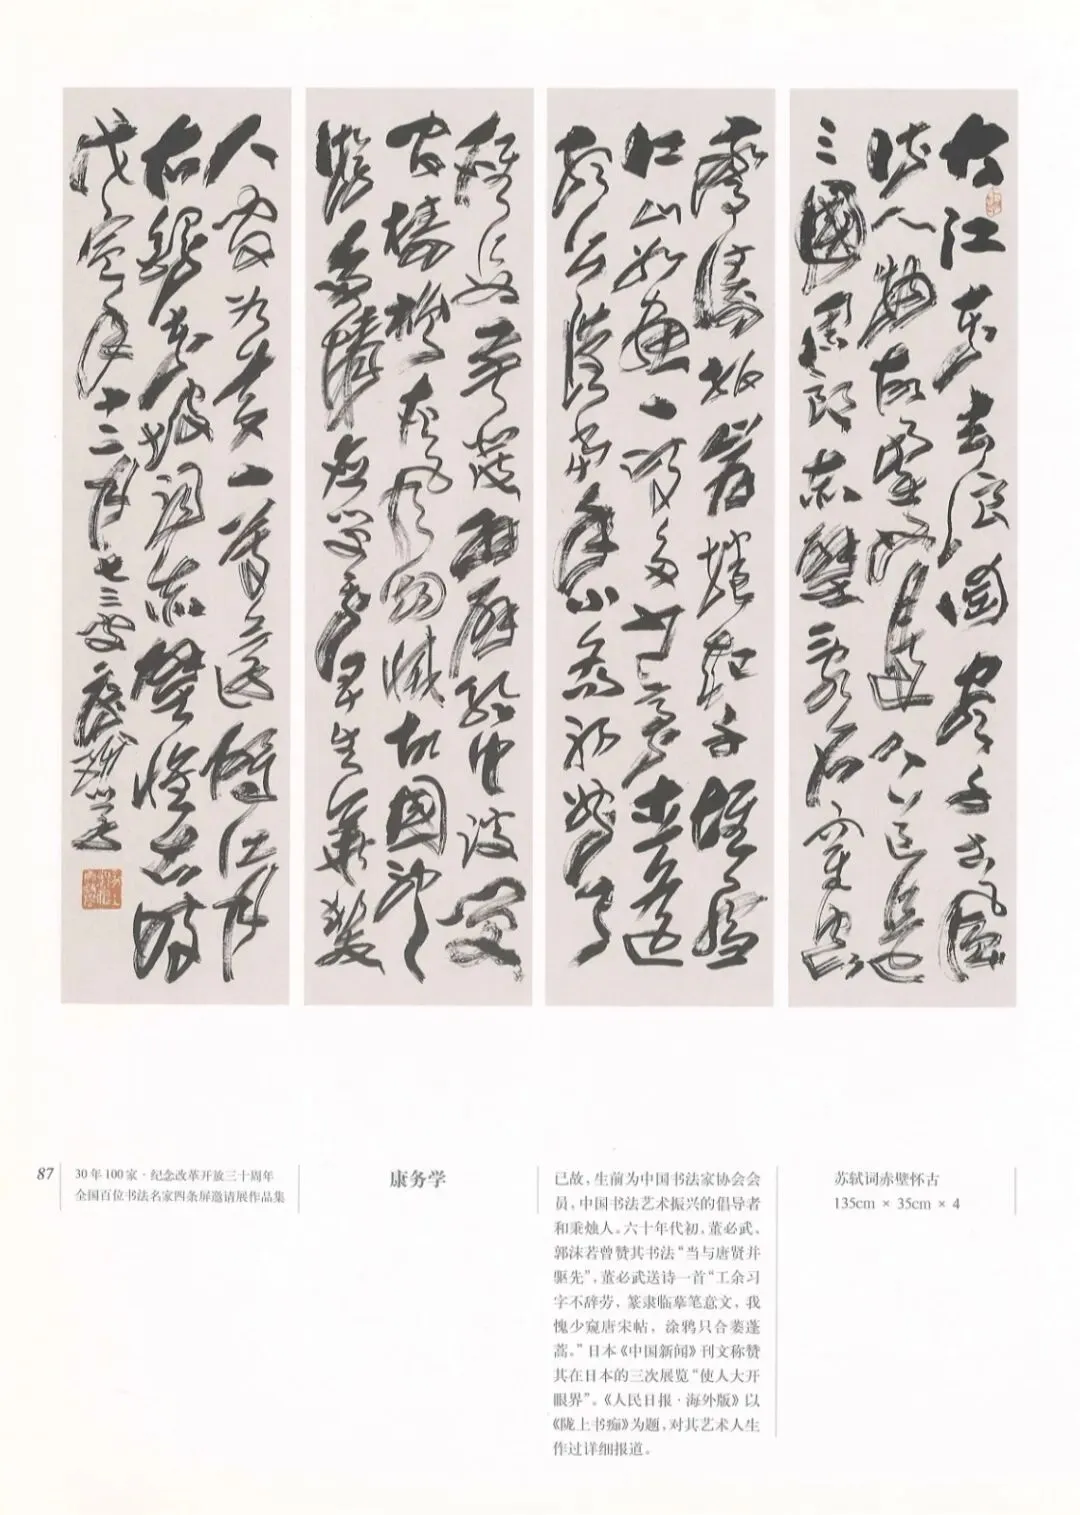 大江東去浪淘盡千古風
人物故壘西邊人道是
三國周郎赤壁亂石穿空
驚濤拍岸捲起千堆雪
江山如畫一時多少豪杰遥
想公瑾當年小喬初嫁了
雄姿英發羽扇綸巾談笑
間檣櫓灰飛煙滅故國神
遊多情應笑我早生華髮
人間如夢一尊還酹江月
右錄東坡詞赤壁懷古時
戊寅年十二月七三叟康務學
87
30年100家·纪念改革开放三十周年
全国百位书法名家四条屏邀请展作品集
康务学
已故，生前为中国书法家协会会
员，中国书法艺术振兴的倡导者
和秉烛人。六十年代初，董必武、
郭沫若曾赞其书法“当与唐贤并
驱先”，董必武送诗一首“工余习
字不辞劳，篆隶临摹笔意文，我
愧少窥唐宋帖，涂鸦只合蒌蓬
蒿。”日本《中国新闻》刊文称赞
其在日本的三次展览“使人大开
眼界”。《人民日报·海外版》以
《陇上书痴》为题，对其艺术人生
作过详细报道。
苏轼词赤壁怀古
135cm × 35cm × 4